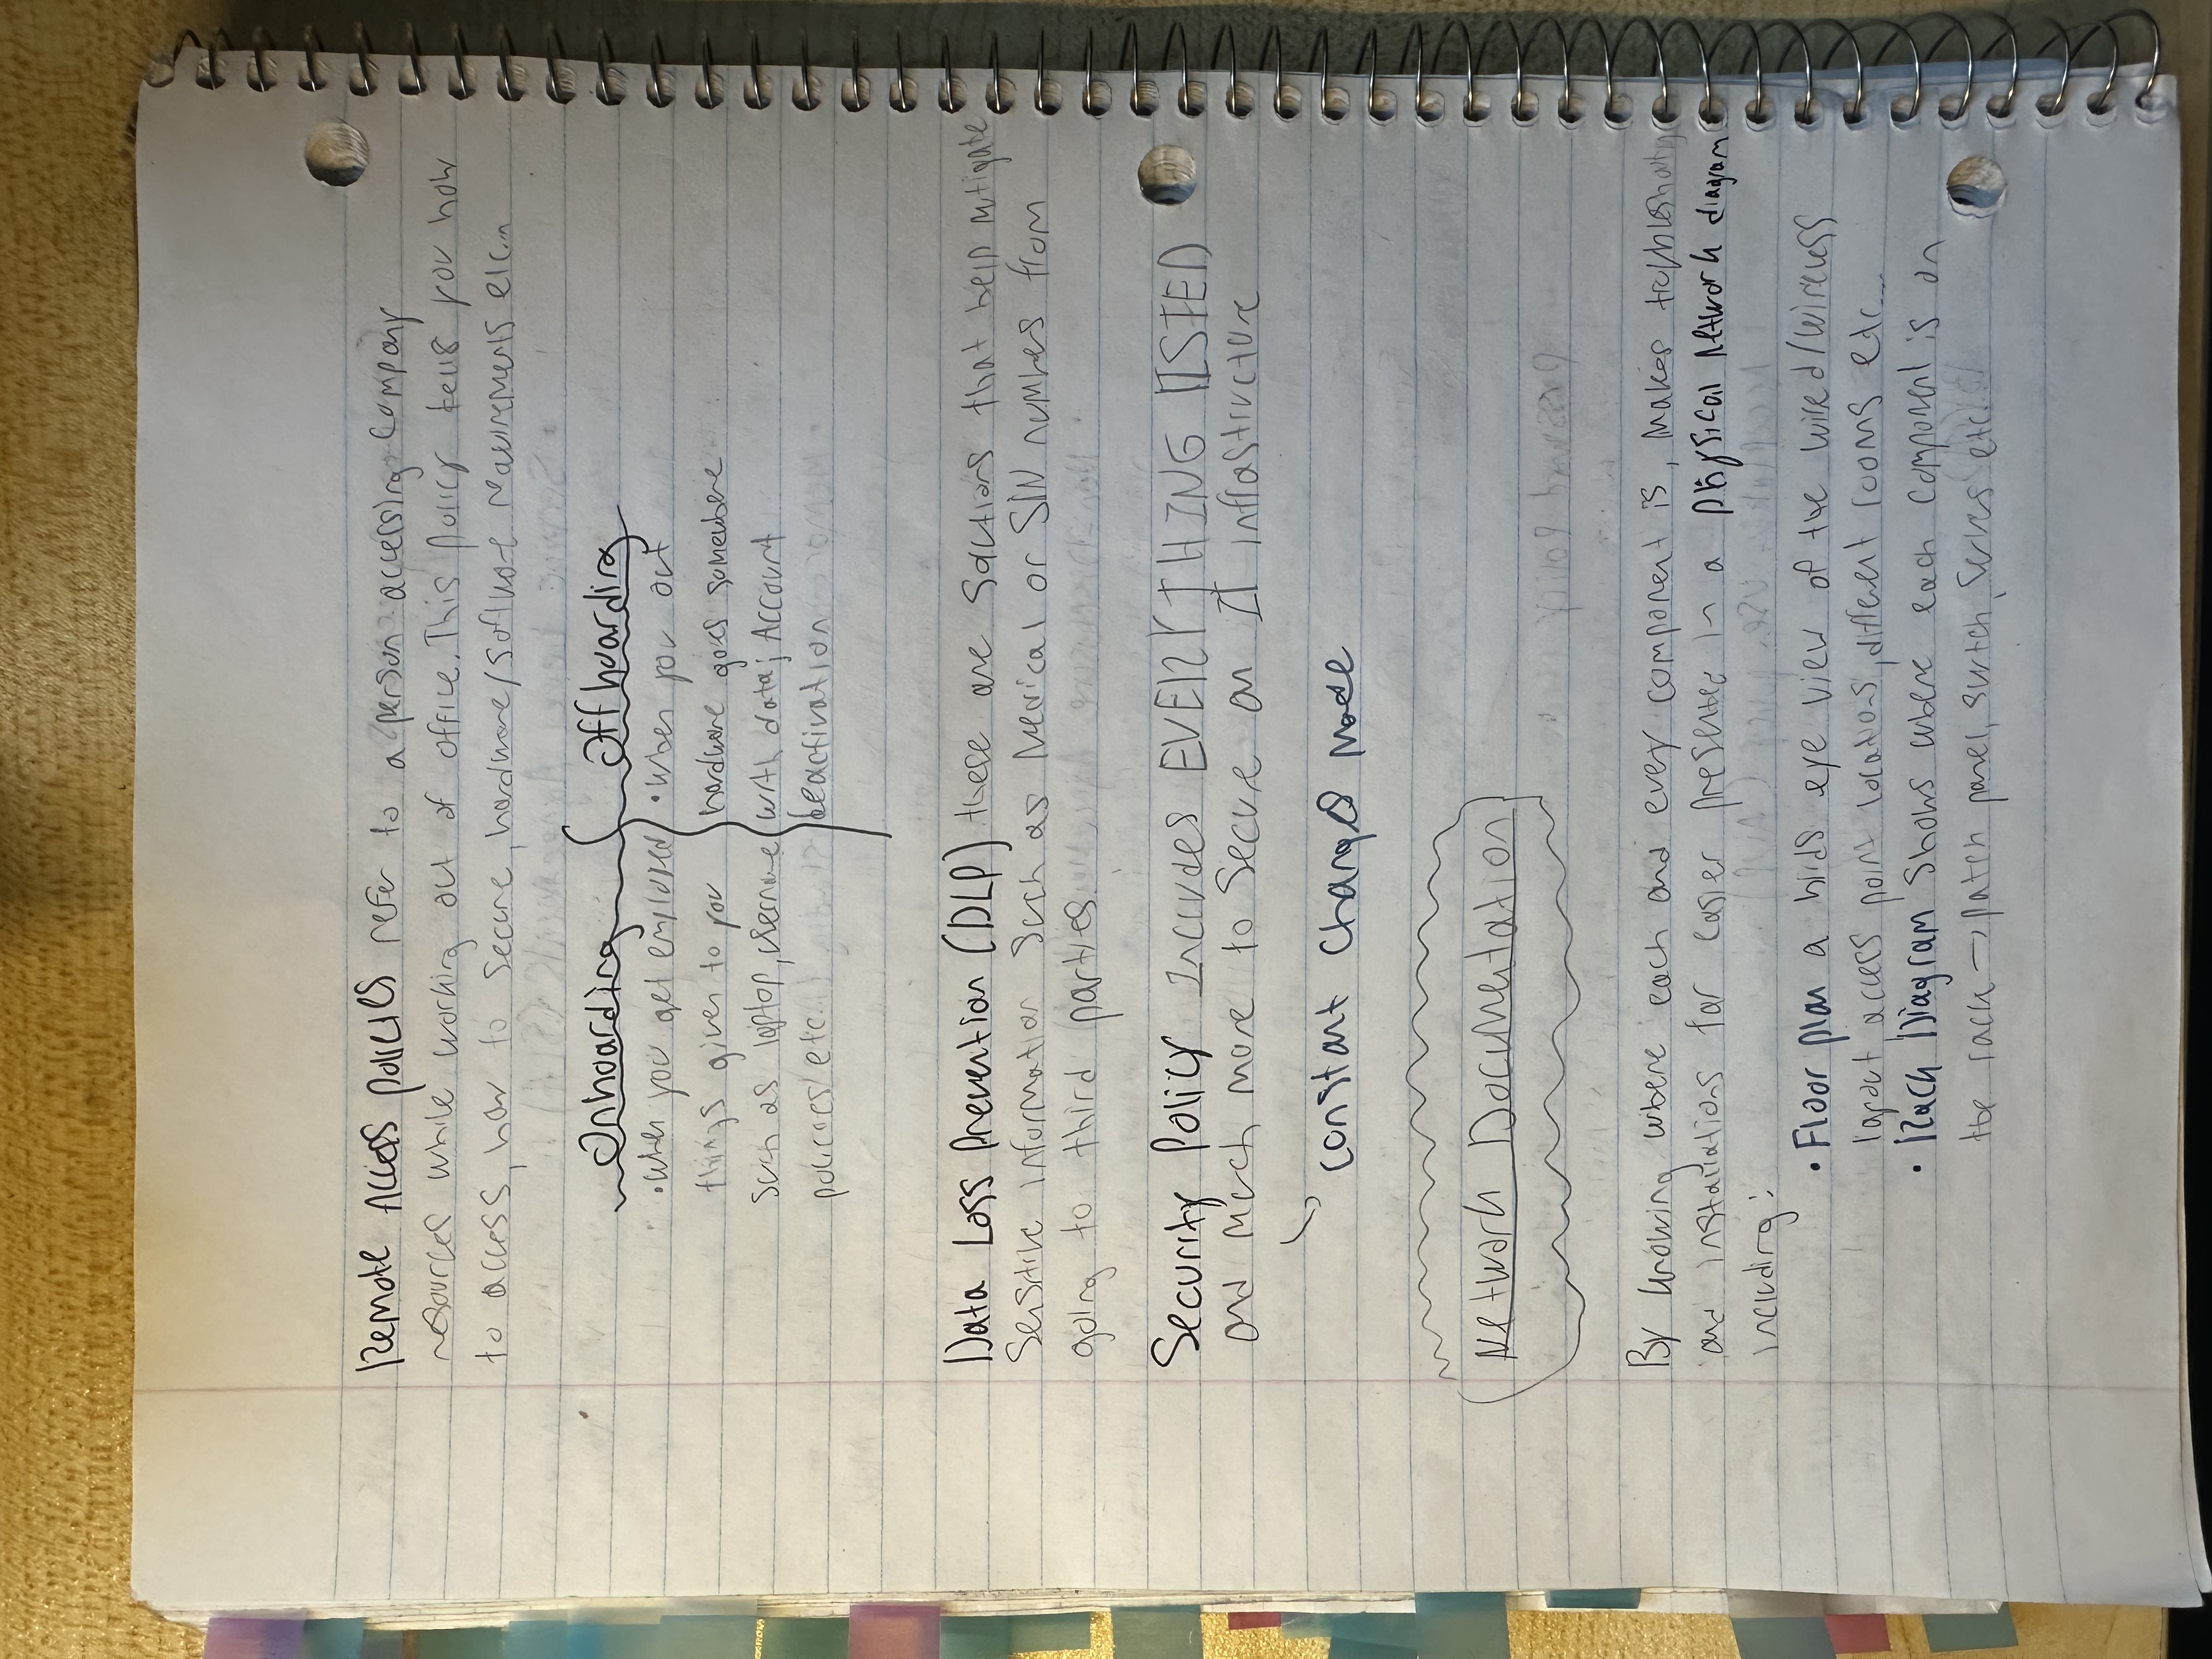 Remote Access policies refer to a person accessing company
resources while working out of office. This policy tells you how
to access, how to secure, hardware/software requirements etc...
Onboarding Offboarding
• When you get employed
things given to you
such as laptop, username
policies etc.
• When you out
hardware goes somewhere
with data; Account
Deactivation
Data Loss Prevention (DLP) these are solutions that help mitigate
Sensitive information such as Medical or SIN numbers from
going to third parties.
Security Policy Includes EVERYTHING LISTED
and much more to secure an IT inflastructure
constant changes made
Network Documentation
By knowing where each and every component is, makes troubleshooting
and installations far easier presented in a physical network diagram
including:
• Floor plan a birds eye view of the wired/wireless
layout, access point locations, different rooms etc...
• Rack Diagram shows where each component is on
the rack → patch panel, switch, servers etc.